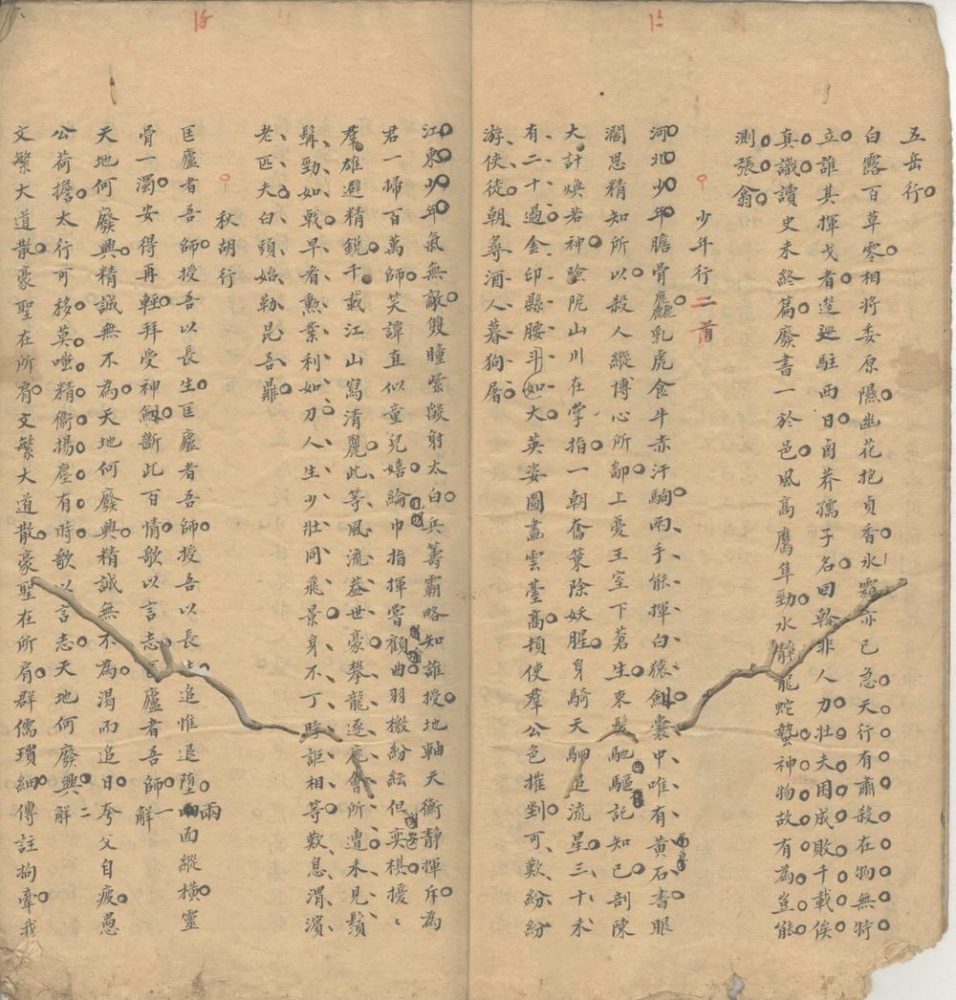 五岳行
白露百草零相將委原隰幽花抱貞香氷霜亦已急天行有肅殺在物無特
立誰其揮戈者逡廵駐西日鹵莽孺子名回斡非人力壯夫困成敗千載俟
真識讀史未終篇廢書一於邑風高鷹隼勁水靜龍蛇蟄神物故有為豈能
測張翁
少年行二首
河北少年膽骨麤乳虎食牛赤汗駒兩手能揮白猿劒囊中唯有黃石書眼
濶思精知所以殺人縱博心所鄙上憂王室下蒼生束髮馳驅託知己剖陳
大計煥若神陰阨山川在掌指一朝奮策除妖腥身騎天駟追流星三十未
有二十過金印縣腰斗如大英姿圖畫雲臺高頓使羣公色摧剉可歎紛紛
游俠徒朝尋酒人暮狗屠
江東少年氣無敵雙瞳紫燄射太白兵籌霸略知誰授地軸天衡靜揮斥為
君一掃百萬師笑譚直似童兒嬉綸巾指揮嘗顧曲羽檄紛紜但奕棋擾〻
羣雄避精銳千載江山寫清麗此等風流葢世豪攀龍逐鹿會所遭未見鬚
髯勁如戟早者勲業利如刀人生少壯同飛景身不丁時詎相等歎息渭濱
老匹夫白頭始勒昆吾鼎
秋胡行
匡廬者吾師授吾以長生匡廬者吾師授吾以長生追惟退墮兩面縱橫靈
骨一濁安得再輕拜受神劒斷此百情歌以言志匡廬者吾師一解
天地何廢興精誠無不為天地何廢興精誠無不為渴而追日夸父自疲愚
公荷擔太行可移莫嗤精衛揚塵有時歌以言志天地何廢興二解
文繁大道散豪聖在所肩文繁大道散豪聖在所肩群儒瑣細傳註拘牽我